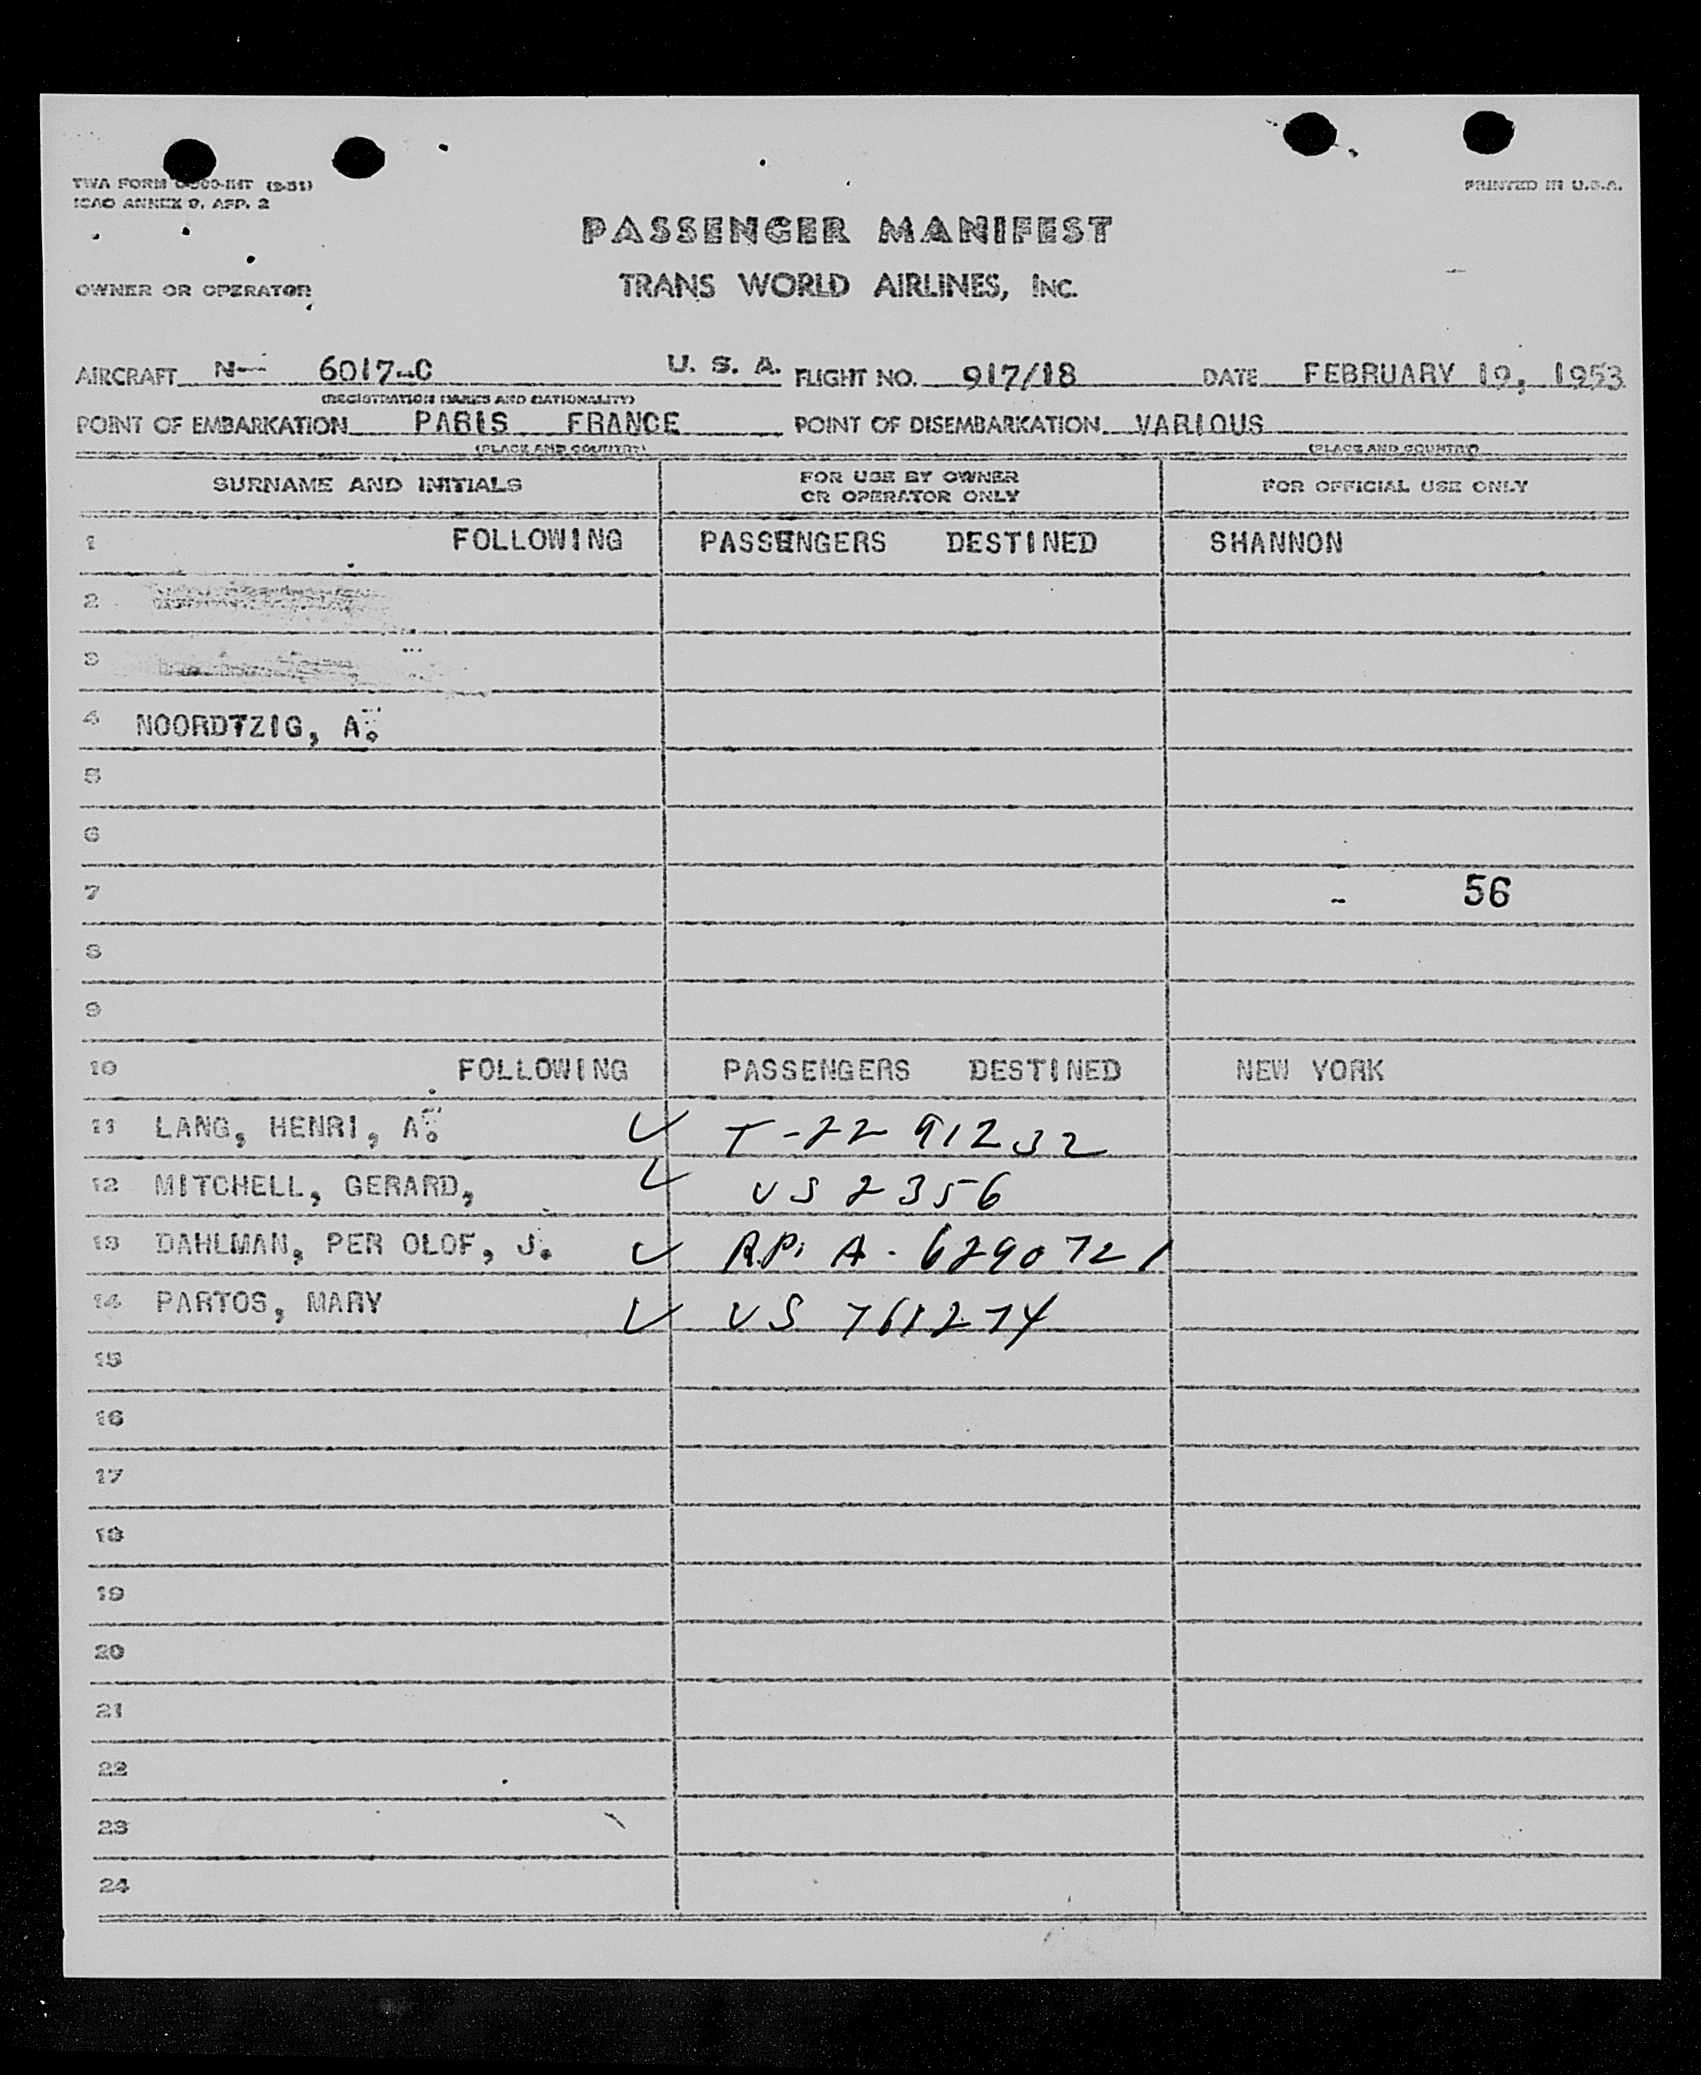 TWA FORM (2-51)
ICAO ANNEX 9, APP. 2
PRINTED IN U.S.A.
PASSENGER MANIFEST
OWNER OR OPERATOR TRANS WORLD AIRLINES, INC.
AIRCRAFT N- 6017-C U. S. A. FLIGHT NO. 917/18 DATE FEBRUARY 19, 1953
(REGISTRATION MARKS AND NATIONALITY)
POINT OF EMBARKATION PARIS FRANCE POINT OF DISEMBARKATION VARIOUS
(PLACE AND COUNTRY) (PLACE AND COUNTRY)
SURNAME AND INITIALS FOR USE BY OWNER OR OPERATOR ONLY FOR OFFICIAL USE ONLY
1 FOLLOWING PASSENGERS DESTINED SHANNON
2
3
4 NOORDTZIG, A.
5
6
7 56
8
9
10 FOLLOWING PASSENGERS DESTINED NEW YORK
11 LANG, HENRI, A. T-22 91232
12 MITCHELL, GERARD, US 2356
13 DAHLMAN, PER OLOF, J. R.P. A-6290721
14 PARTOS, MARY US 761274
15
16
17
18
19
20
21
22
23
24